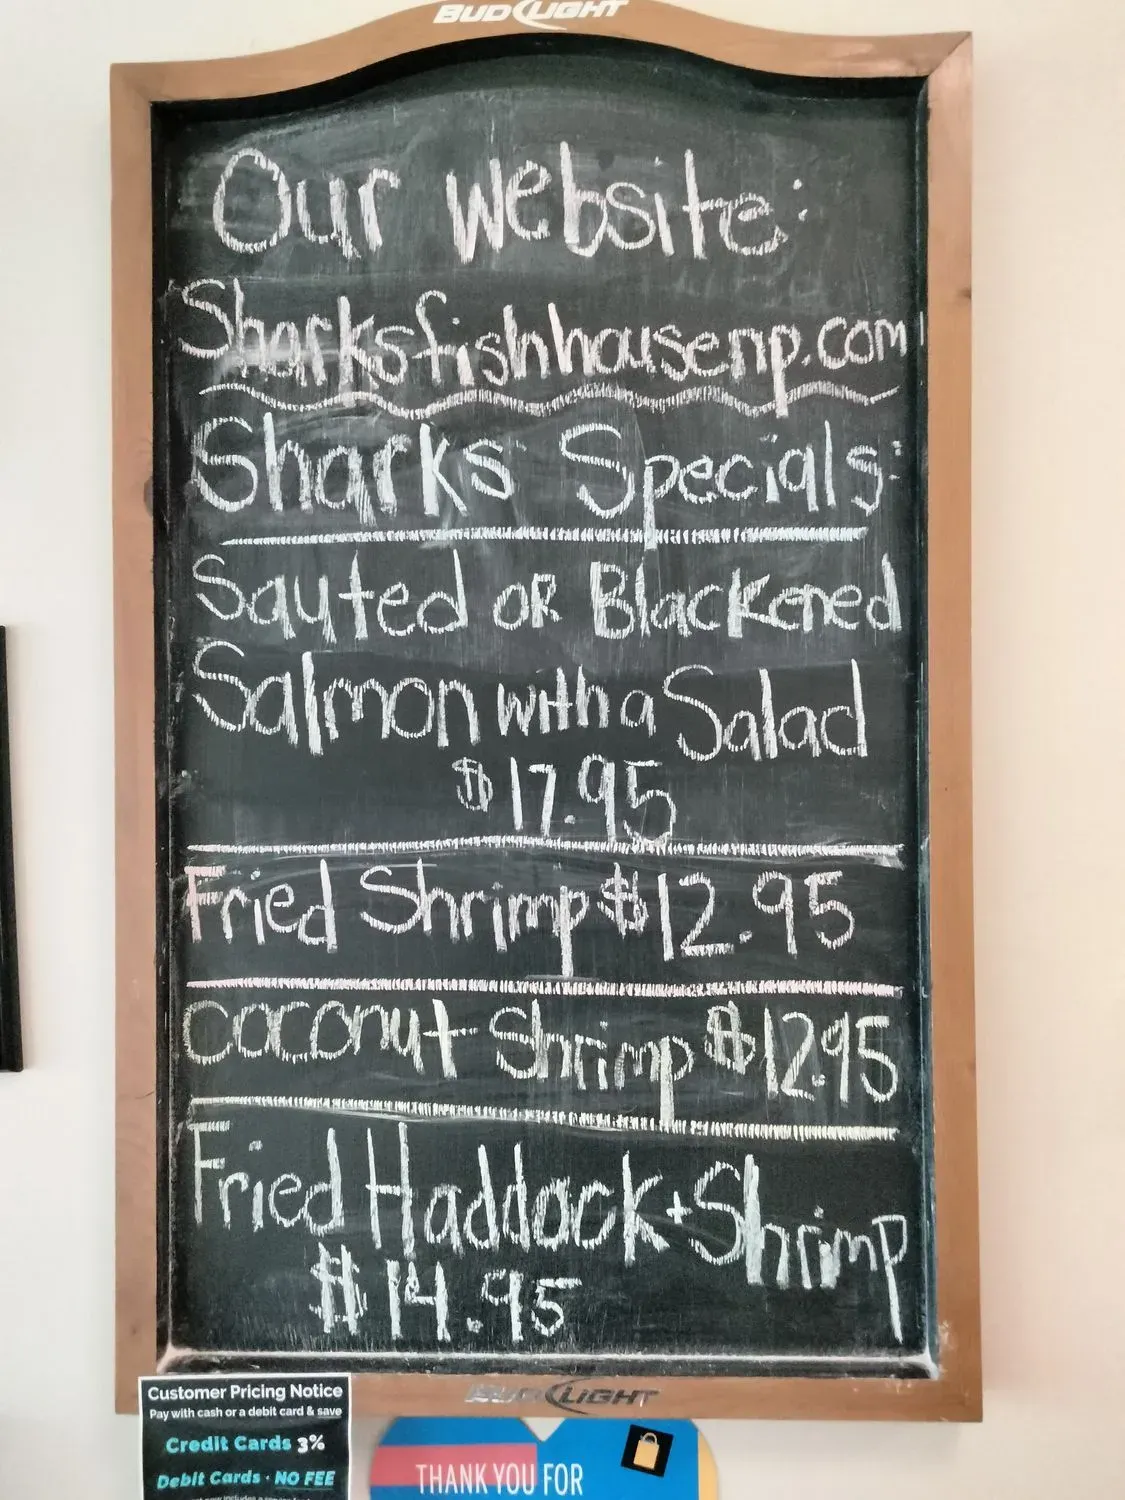 BUD LIGHT
Our website:
Sharksfishhousenp.com
Sharks Specials:
Sauted OR Blackened
Salmon with a Salad
$17.95
Fried Shrimp $12.95
Coconut Shrimp $12.95
Fried Haddock + Shrimp
$14.95
BUD LIGHT
Customer Pricing Notice
Pay with cash or a debit card & save
Credit Cards 3%
Debit Cards · NO FEE
THANK YOU FOR